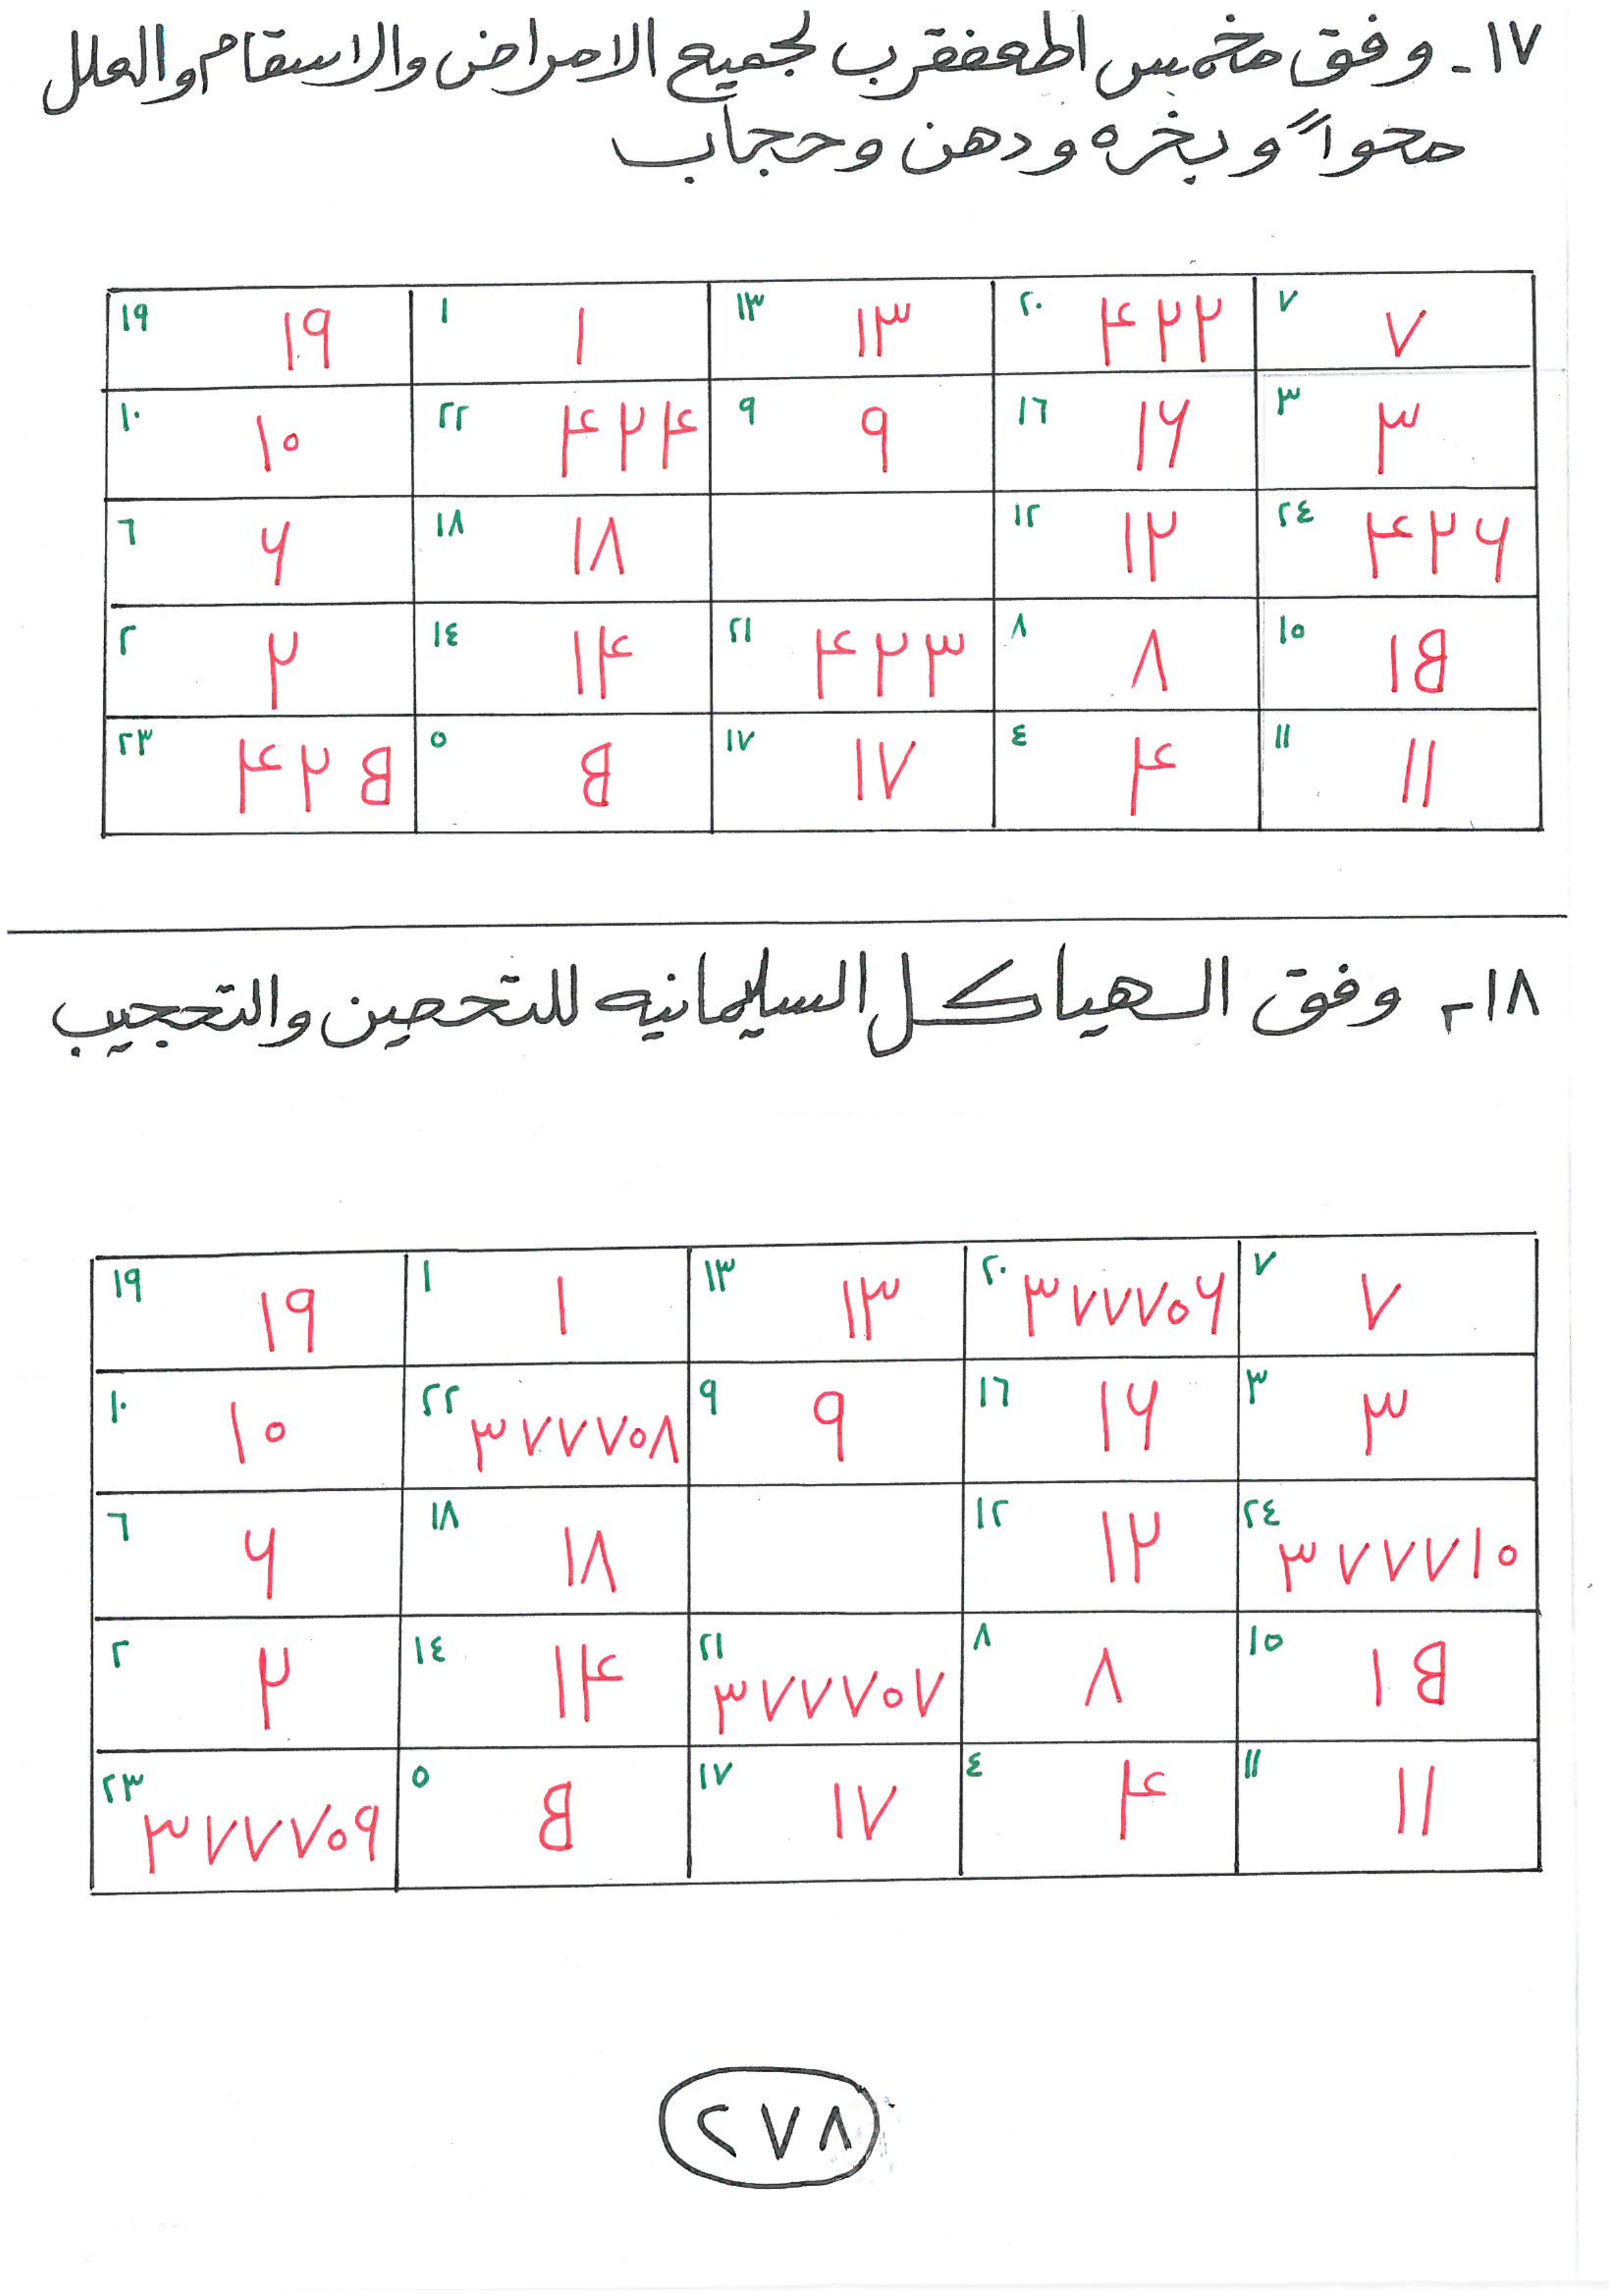 ١٧- وفق مخمس اطعفقرب لجميع الامراض والاسقام والعلل
محواً وبخره ودهن وحجاب
١٩ ١٩ ١ ١ ١٣ ١٣ ٢٠ ۴٢٢ ٧ ٧
١٠ ١٠ ٢٢ ۴٢۴ ٩ ٩ ١٦ ١۶ ٣ ٣
٦ ۶ ١٨ ١٨ ١٢ ١٢ ٢٤ ۴٢۶
٢ ٢ ١٤ ١۴ ٢١ ۴٢٣ ٨ ٨ ١٥ ١B
٢٣ ۴٢B ٥ B ١٧ ١٧ ٤ ۴ ١١ ١١
١٨- وفق الهياكل السليمانيه للتحصين والتحجيب
١٩ ١٩ ١ ١ ١٣ ١٣ ٢٠ ٣٧٧٧٥۶ ٧ ٧
١٠ ١٠ ٢٢ ٣٧٧٧٥٨ ٩ ٩ ١٦ ١۶ ٣ ٣
٦ ۶ ١٨ ١٨ ١٢ ١٢ ٢٤ ٣٧٧٧١٥
٢ ٢ ١٤ ١۴ ٢١ ٣٧٧٧٥٧ ٨ ٨ ١٥ ١B
٢٣ ٣٧٧٧٥٩ ٥ B ١٧ ١٧ ٤ ۴ ١١ ١١
٢٧٨